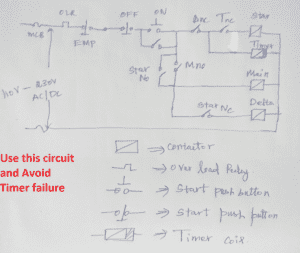 OLR
OFF
ON
Dnc
Tnc
Star
MCB
EMP
Timer
Star
No
Mno
Main
110V - 230V
AC/DC
Star Nc
Delta
Use this circuit
and Avoid
Timer failure
⇒ contactor
⇒ over load Relay
⇒ Start push button
⇒ Start push button
⇒ Timer coil